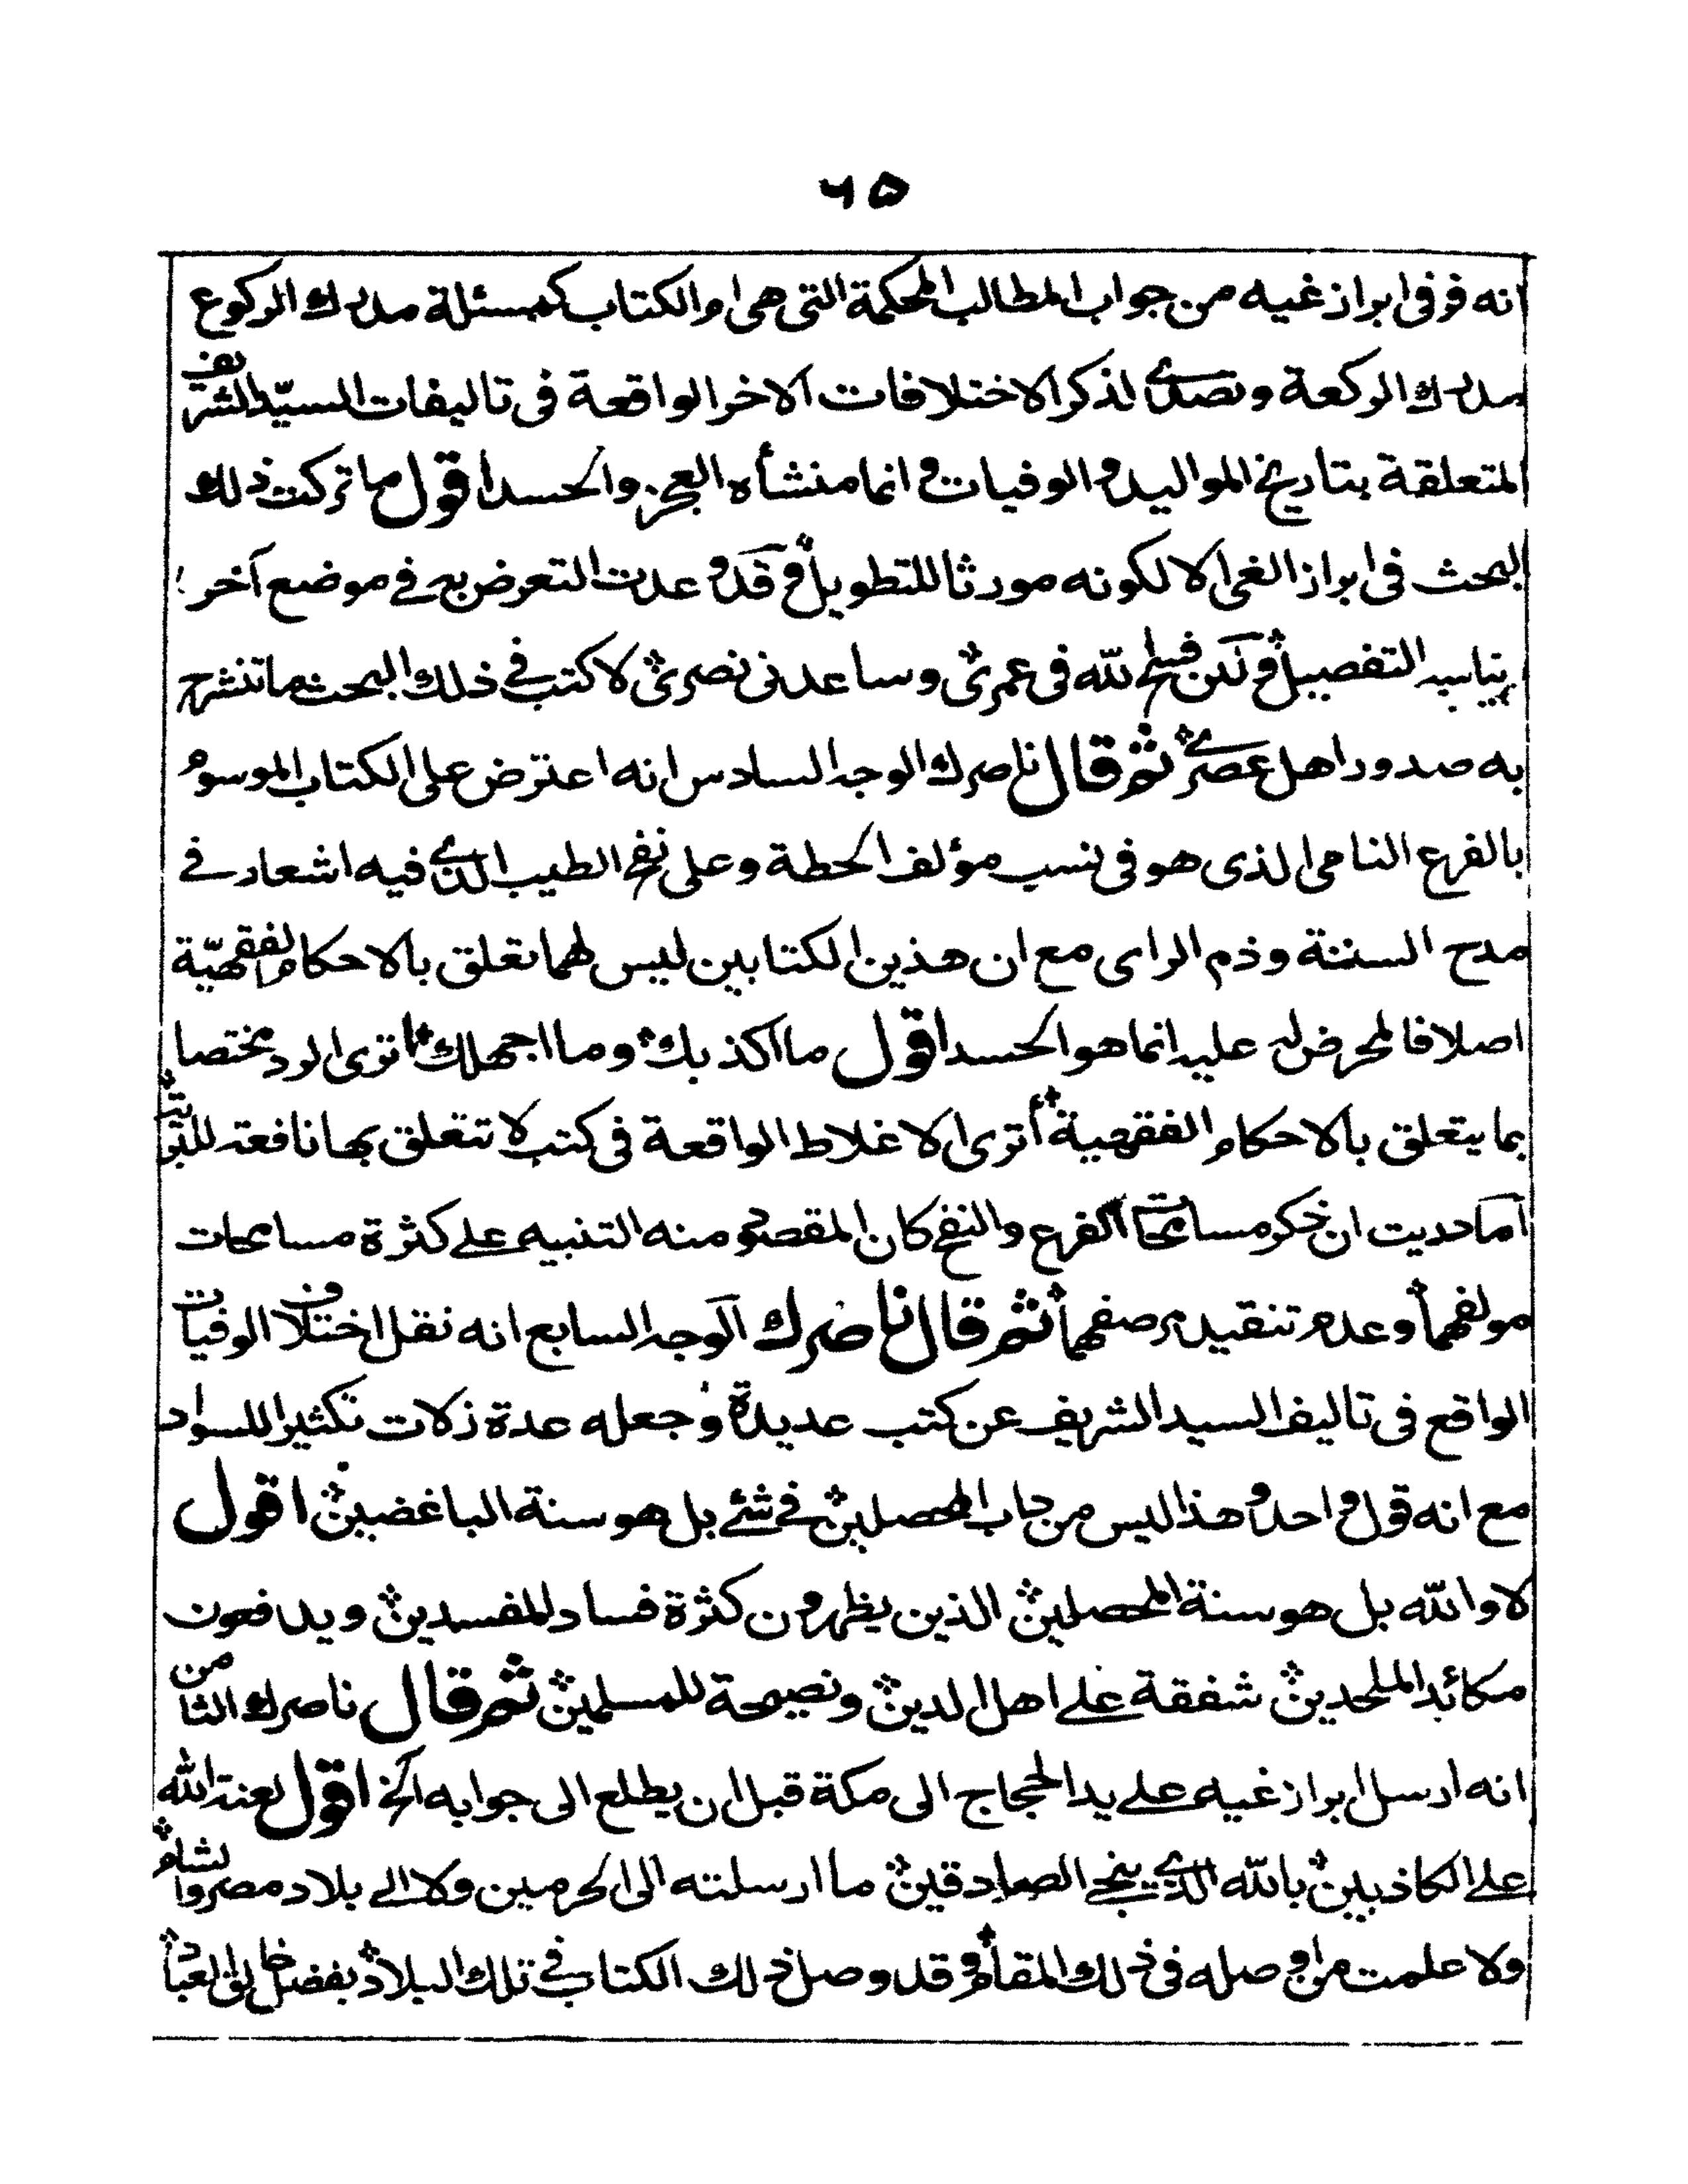 ٦٥
انه فر فى ابراز غيه من جواب المطالب المحكمة التى هى ام الكتاب كمسئلة مدرك الركوع
مدرك الركعة وتصدى لذكر الاختلافات الاخر الواقعة فى تاليفات السيد الشريف
المتعلقة بتاريخ المواليد والوفيات وانما منشأه العجز والحسد اقول ما تركت ذلك
البحث فى ابراز الغى الا لكونه مورثا للتطويل وقد وعدت التعرض به فى موضع آخر
يناسبه التفصيل ولئن فسح الله فى عمرى وساعدنى نصرى لاكتب فى ذلك البحث ما تنشرح
به صدور اهل عصرى ثم قال ناصرك الوجه السادس انه اعترض على الكتاب الموسوم
بالفرع النامى الذى هو فى نسب مؤلف الحطة وعلى نفح الطيب الذى فيه اشعار فى
مدح السنة وذم الراى مع ان هذين الكتابين ليس لهما تعلق بالاحكام الفقهية
اصلا فالمحرض له عليه انما هو الحسد اقول ما اكذبك وما اجهلك اترى الرد مختصا
بما يتعلق بالاحكام الفقهية أترى الاغلاط الواقعة فى كتب لا تتعلق بها نافعة للبرية
اما دريت ان ذكر مسامحات الفرع والنفح كان المقصود منه التنبيه على كثرة مسامحات
مولفهما وعدم تنقيد مرصفهما ثم قال ناصرك الوجه السابع انه نقل اختلاف الوفيات
الواقع فى تاليف السيد الشريف عن كتب عديدة وجعله عدة زلات تكثيرا للسواد
مع انه قول واحد وهذا ليس من داب المحصلين فى شئ بل هو سنة الباغضين اقول
لا والله بل هو سنة المحصلين الذين يظهرون كثرة فساد المفسدين ويدفعون
مكائد الملحدين شفقة على اهل الدين ونصيحة للمسلمين ثم قال ناصرك الثامن
انه ارسل ابراز غيه على يد الحجاج الى مكة قبل ان يطلع الى جوابه الخ اقول لعنة الله
على الكاذبين بالله الذى ينجى الصادقين ما ارسلته الى الحرمين ولا الى بلاد مصر والشام
ولا علمت من اوصله فى ذلك المقام وقد وصل ذلك الكتاب فى تلك البلاد بفضل خالق العباد